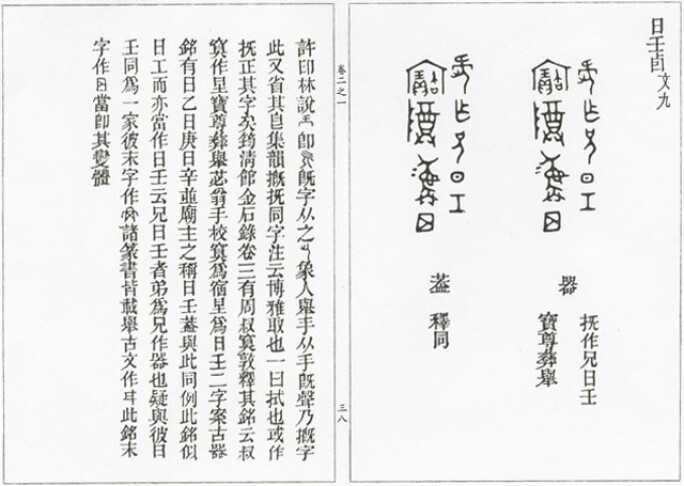 日壬卣 文九
器
抚作兄日壬
寶尊彝舉
蓋
釋同
卷二之一
三八
許印林說卽旣字从之象人舉手从手旣聲乃摡字
此又省其皀集韻摡抚同字注云博雅取也一曰拭也或作
抚正其字矣筠清館金石錄卷三有周叔敦釋其銘云叔
作呈寶尊彝舉苾翁手校爲宿呈爲日壬二字案古器
銘有日乙日庚日辛並廟主之稱日壬蓋與此同例此銘似
日工而亦當作日壬云兄日壬者弟爲兄作器也疑與彼日
壬同爲一家彼末字作諸篆書皆載舉古文作此銘末
字作當卽其變體